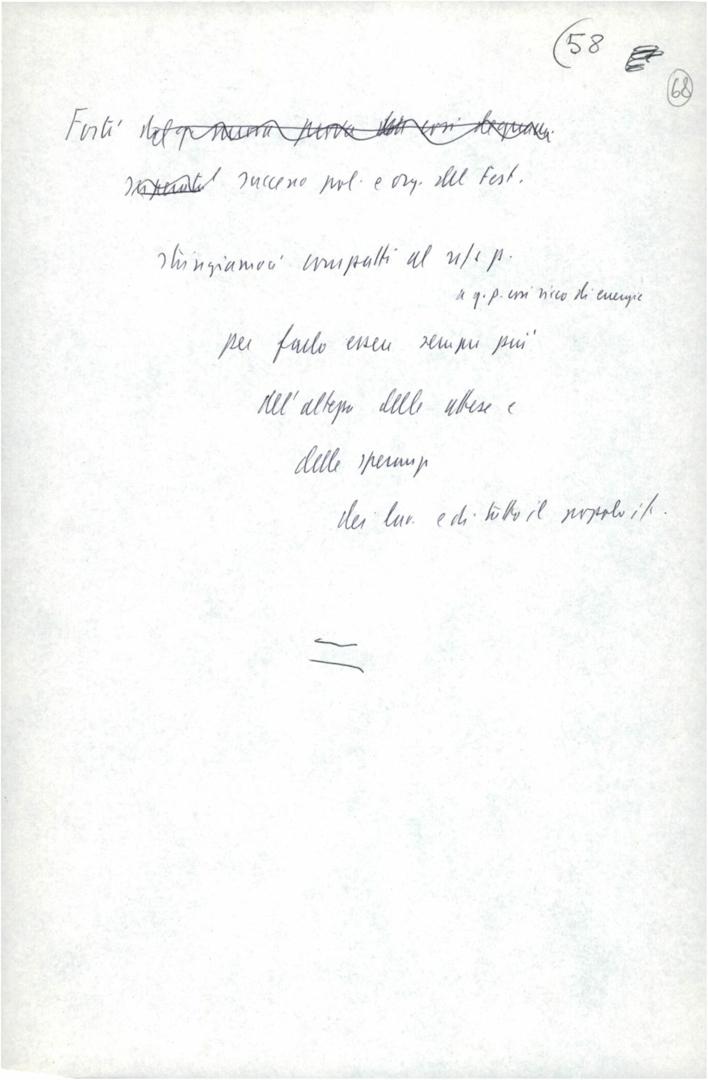 (58
68
Forti del
successo pol. e org. del Fest.
stringiamoci compatti al n/s p.
a q. p. così ricco di energie
per farlo essere sempre più
all'altezza delle attese e
delle speranze
dei lav. e di tutto il popolo it.